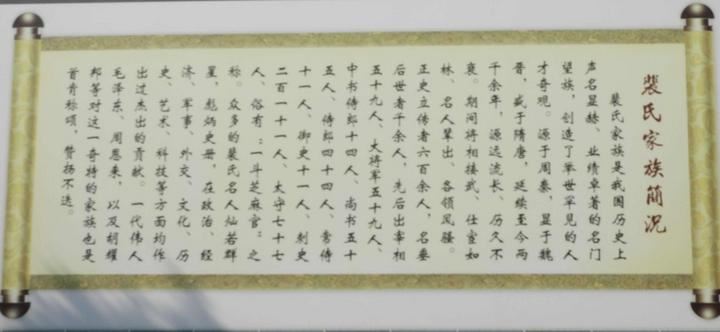 裴氏家族简况
裴氏家族是我国历史上
声名显赫、业绩卓著的名门
望族，创造了举世罕见的人
才奇观。源于周秦，显于魏
晋，盛于隋唐，延续至今两
千余年，源远流长，历久不
衰。期间将相接武、仕宦如
林、名人辈出、各领风骚。
正史立传者六百余人，名垂
后世者千余人，先后出宰相
五十九人、大将军五十九人、
中书侍郎十四人、尚书五十
五人、侍郎四十四人、常侍
十一人、御史十一人、刺史
二百一十一人、太守七十七
人，俗有：一斗芝麻官：之
称。众多的裴氏名人灿若群
星，彪炳史册，在政治、经
济、军事、外交、文化、历
史、艺术、科技等方面均作
出过杰出的贡献。一代伟人
毛泽东、周恩来，以及胡耀
邦等对这一奇特的家族也是
首肯称颂，赞扬不迭。